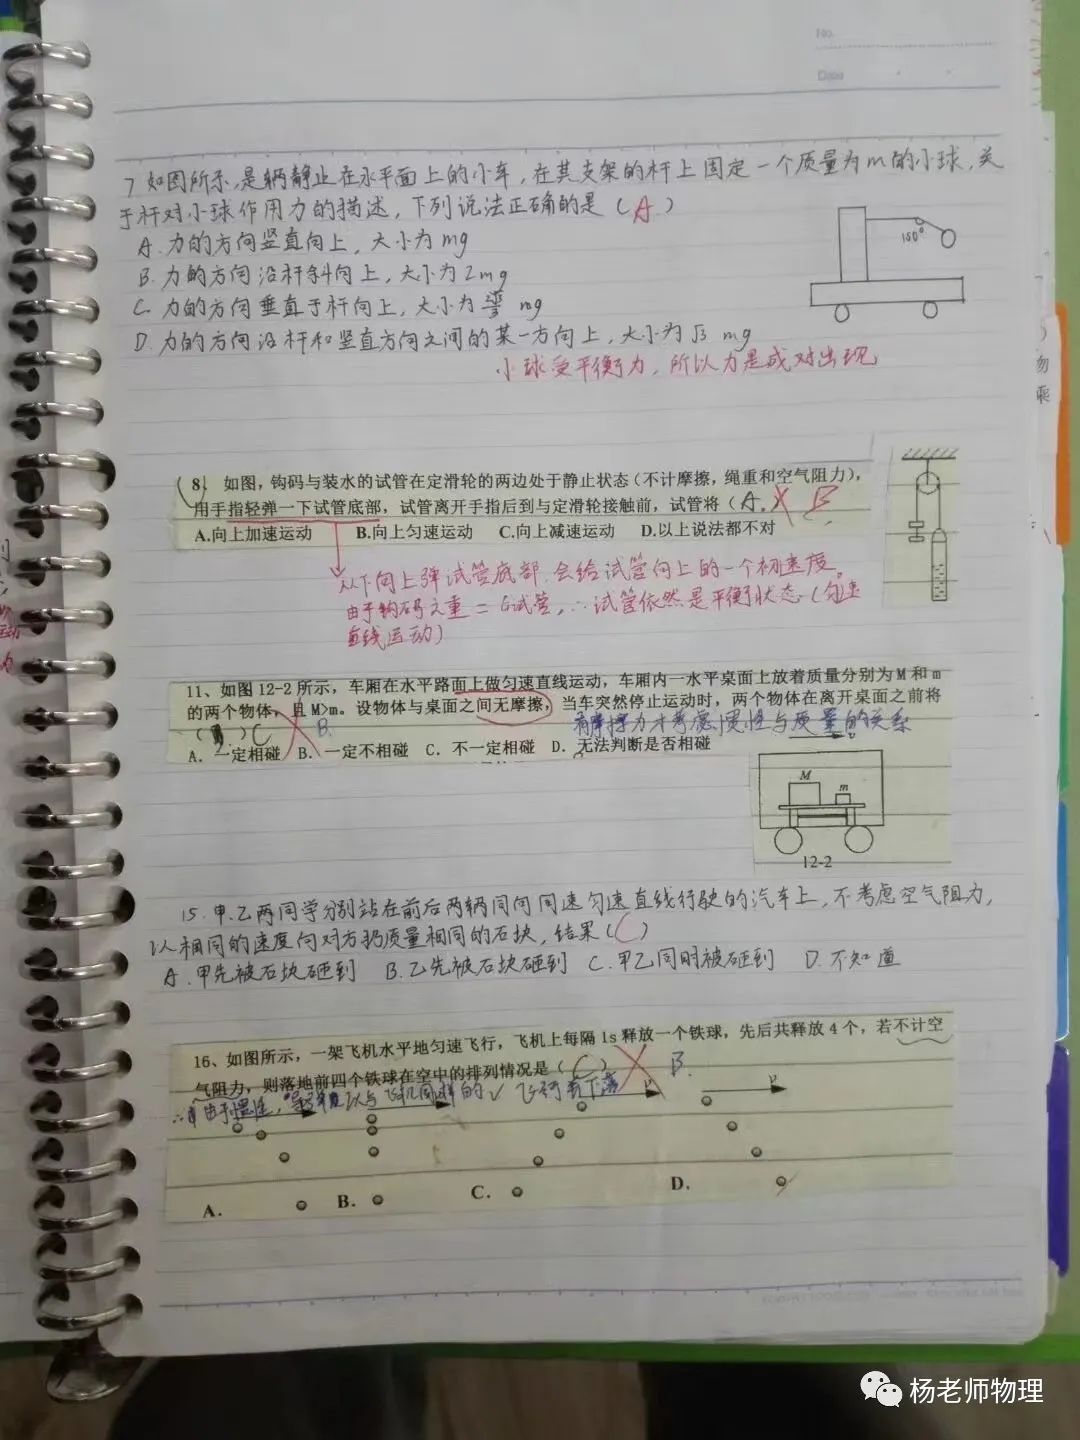 No.
Date
7 如图所示,是辆静止在水平面上的小车,在其支架的杆上固定一个质量为m的小球,关
于杆对小球作用力的描述,下列说法正确的是(A)
A.力的方向竖直向上,大小为mg
150°
B.力的方向沿杆斜向上,大小为2mg
C.力的方向垂直于杆向上,大小为 mg
D.力的方向沿杆和竖直方向之间的某一方向上,大小为√3 mg
小球受平衡力,所以力是成对出现
8. 如图,钩码与装水的试管在定滑轮的两边处于静止状态(不计摩擦,绳重和空气阻力),
用手指轻弹一下试管底部,试管离开手指后到与定滑轮接触前,试管将(A. B
A.向上加速运动 B.向上匀速运动 C.向上减速运动 D.以上说法都不对
从下向上弹试管底部,会给试管向上的一个初速度。
由于钩码之重=G试管,∴试管依然是平衡状态(匀速
直线运动)
11、如图12-2所示,车厢在水平路面上做匀速直线运动,车厢内一水平桌面上放着质量分别为M和m
的两个物体,且M>m。设物体与桌面之间无摩擦,当车突然停止运动时,两个物体在离开桌面之前将
( )C B. 有摩擦力才考虑惯性与质量的关系
A. 一定相碰 B. 一定不相碰 C. 不一定相碰 D. 无法判断是否相碰
M
m
12-2
15.甲、乙两同学分别站在前后两辆同向同速匀速直线行驶的汽车上,不考虑空气阻力,
以相同的速度向对方扔质量相同的石块,结果(C)
A.甲先被石块砸到 B.乙先被石块砸到 C.甲乙同时被砸到 D.不知道
16、如图所示,一架飞机水平地匀速飞行,飞机上每隔1s释放一个铁球,先后共释放4个,若不计空
气阻力,则落地前四个铁球在空中的排列情况是(C) B.
由于惯性, 以与飞机同样的v
A. B. C. D.
杨老师物理